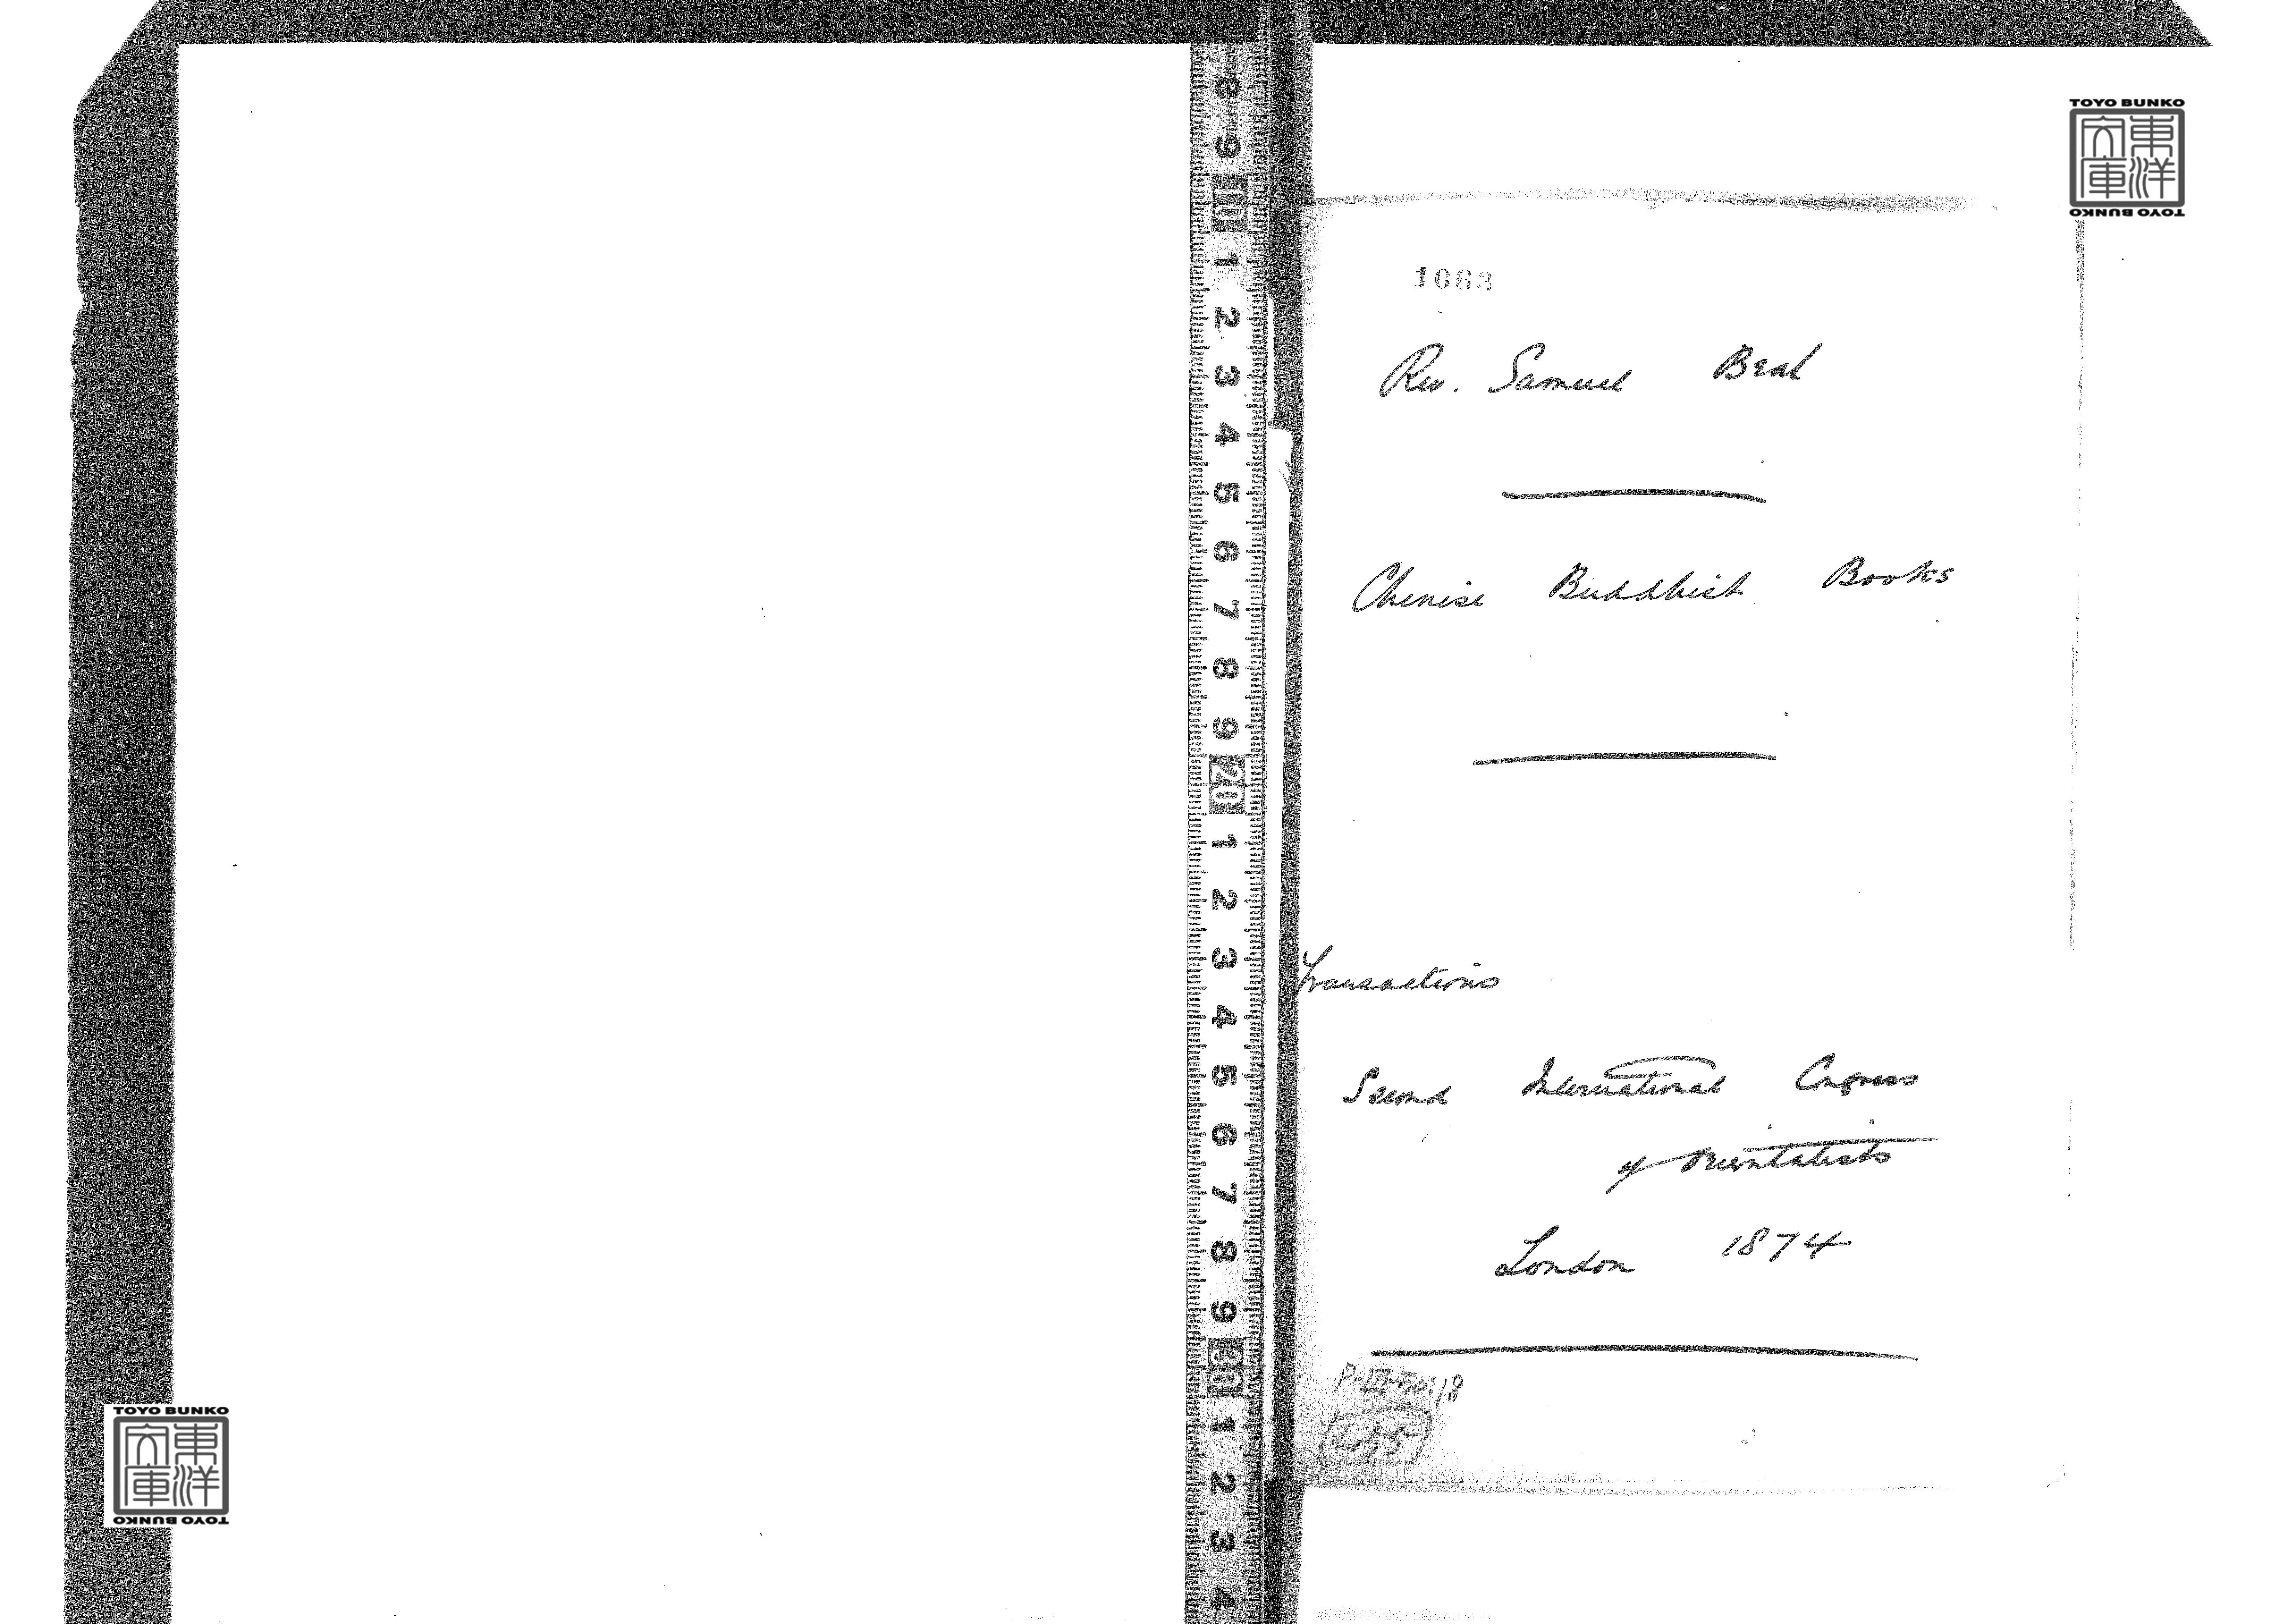 TOYO BUNKO
東洋
文庫
TOYO BUNKO
1063
Rev. Samuel Beal
Chinese Buddhist Books
Transactions
Second International Congress
of Orientalists
London 1874
P-III-50:18
L55
TOYO BUNKO
東洋
文庫
TOYO BUNKO
JAPAN
8
9
10
1
2
3
4
5
6
7
8
9
20
1
2
3
4
5
6
7
8
9
30
1
2
3
4